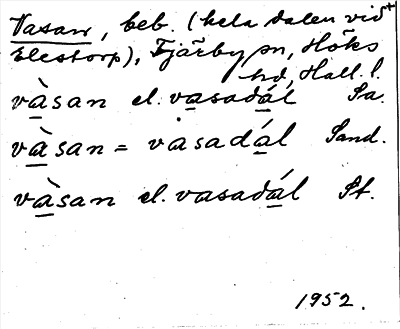 Vasan, beb. (hela dalen vid+
Elestorp), Tjärby sn, Höks
hd, Hall. l.
và̱san el. va̱sadá̱l Sa.
và̱san = vȧsadá̱l Sand.
và̱san el. vasadá̱l St.
1952.